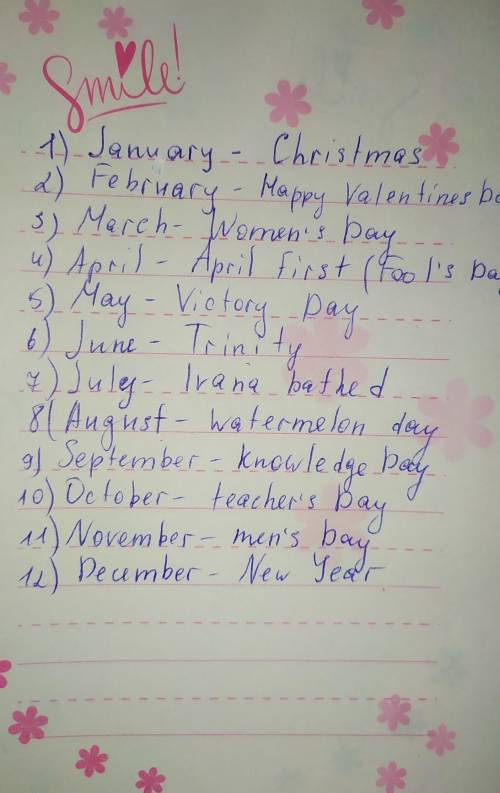 Smile!
1) January - Christmas
2) February - Happy Valentines Da
3) March - Women's Day
4) April - April first (Fool's Day
5) May - Victory Day
6) June - Trinity
7) July - Ivana bathed
8( August - watermelon day
9) September - knowledge Day
10) October - teacher's Day
11) November - men's Day
12) December - New Year